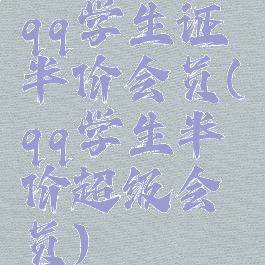 qq学生证
半价会员(
qq学生半
价超级会
员)